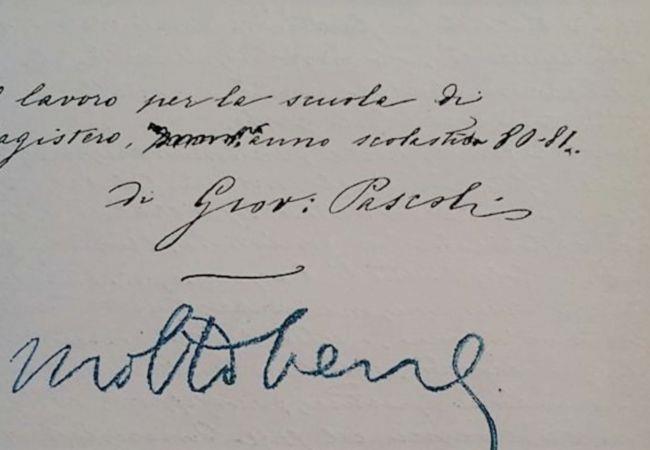 l lavoro per la scuola di
agistero, anno scolastico 80-81.
di Giov: Pascoli
molto bene